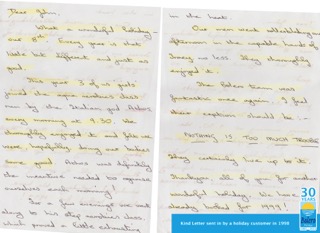 Dear John,
What a wonderful holiday -
our 9th. Every year is that
little bit different and just as
good.
This year 3 of us girls
joined the aqua aerobics class
run by the Italian god
every morning at 9.30. We
thoroughly enjoyed it and felt we
were, hopefully, doing our bodies
some good. was definitely
the incentive needed to organise
ourselves each morning!
On a few evenings we went
along to his step aerobics class,
which proved a little exhausting
in the heat.
Our men went waterskiing each
afternoon in the capable hands of
no less. They thoroughly
enjoyed it.
The team was
fantastic once again. I feel
their caption should be :-
NOTHING IS TOO MUCH TROUBLE
They certainly live up to it.
Thankyou all of you for another
wonderful holiday. We have
already booked for 1999!
30
YEARS
Kind Letter sent in by a holiday customer in 1998